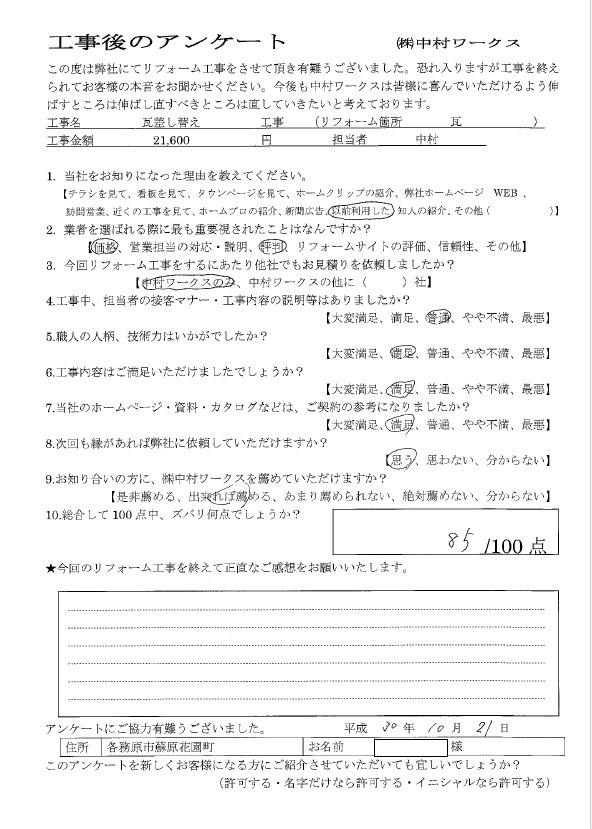 工事後のアンケート　㈱中村ワークス
この度は弊社にてリフォーム工事をさせて頂き有難うございました。恐れ入りますが工事を終え
られてお客様の本音をお聞かせください。今後も中村ワークスは皆様に喜んでいただけるよう伸
ばすところは伸ばし直すべきところは直していきたいと考えております。
工事名　瓦差し替え　工事　（リフォーム箇所　瓦　）
工事金額　21,600　円　担当者　中村
1. 当社をお知りになった理由を教えてください。
【チラシを見て、看板を見て、タウンページを見て、ホームクリップの紹介、弊社ホームページ　WEB 、
訪問営業、近くの工事を見て、ホームプロの紹介、新聞広告、以前利用した、知人の紹介、その他（　）】
2. 業者を選ばれる際に最も重要視されたことはなんですか？
【価格、営業担当の対応・説明、評判、リフォームサイトの評価、信頼性、その他】
3. 今回リフォーム工事をするにあたり他社でもお見積りを依頼しましたか？
【中村ワークスのみ、中村ワークスの他に（　）社】
4.工事中、担当者の接客マナー・工事内容の説明等はありましたか？
【大変満足、満足、普通、やや不満、最悪】
5.職人の人柄、技術力はいかがでしたか？
【大変満足、満足、普通、やや不満、最悪】
6.工事内容はご満足いただけましたでしょうか？
【大変満足、満足、普通、やや不満、最悪】
7.当社のホームページ・資料・カタログなどは、ご契約の参考になりましたか？
【大変満足、満足、普通、やや不満、最悪】
8.次回も縁があれば弊社に依頼していただけますか？
【思う、思わない、分からない】
9.お知り合いの方に、㈱中村ワークスを薦めていただけますか？
【是非薦める、出来れば薦める、あまり薦められない、絶対薦めない、分からない】
10.総合して 100 点中、ズバリ何点でしょうか？
85 /100 点
★今回のリフォーム工事を終えて正直なご感想をお願いいたします。
アンケートにご協力有難うございました。　平成 30 年 10 月 21 日
住所　各務原市蘇原花園町　お名前　様
このアンケートを新しくお客様になる方にご紹介させていただいても宜しいでしょうか？
（許可する・名字だけなら許可する・イニシャルなら許可する）